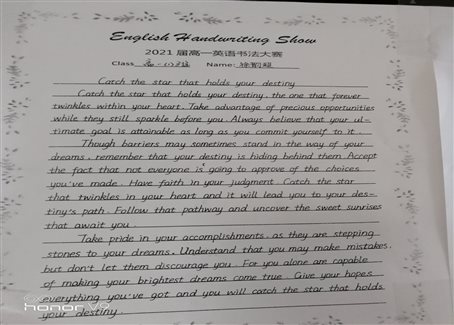 English Handwriting Show
2021届高一英语书法大赛
Class 高一(1)班 Name: 徐
Catch the star that holds your destiny
Catch the star that holds your destiny, the one that forever
twinkles within your heart. Take advantage of precious opportunities
while they still sparkle before you. Always believe that your ul-
timate goal is attainable as long as you commit yourself to it.
Though barriers may sometimes stand in the way of your
dreams, remember that your destiny is hiding behind them. Accept
the fact that not everyone is going to approve of the choices
you've made. Have faith in your judgment. Catch the star
that twinkles in your heart and it will lead you to your des-
tiny's path. Follow that pathway and uncover the sweet sunrises
that await you.
Take pride in your accomplishments, as they are stepping
stones to your dreams. Understand that you may make mistakes,
but don't let them discourage you. For you alone are capable
of making your brightest dreams come true. Give your hopes
everything you've got and you will catch the star that holds
your destiny
honor V9